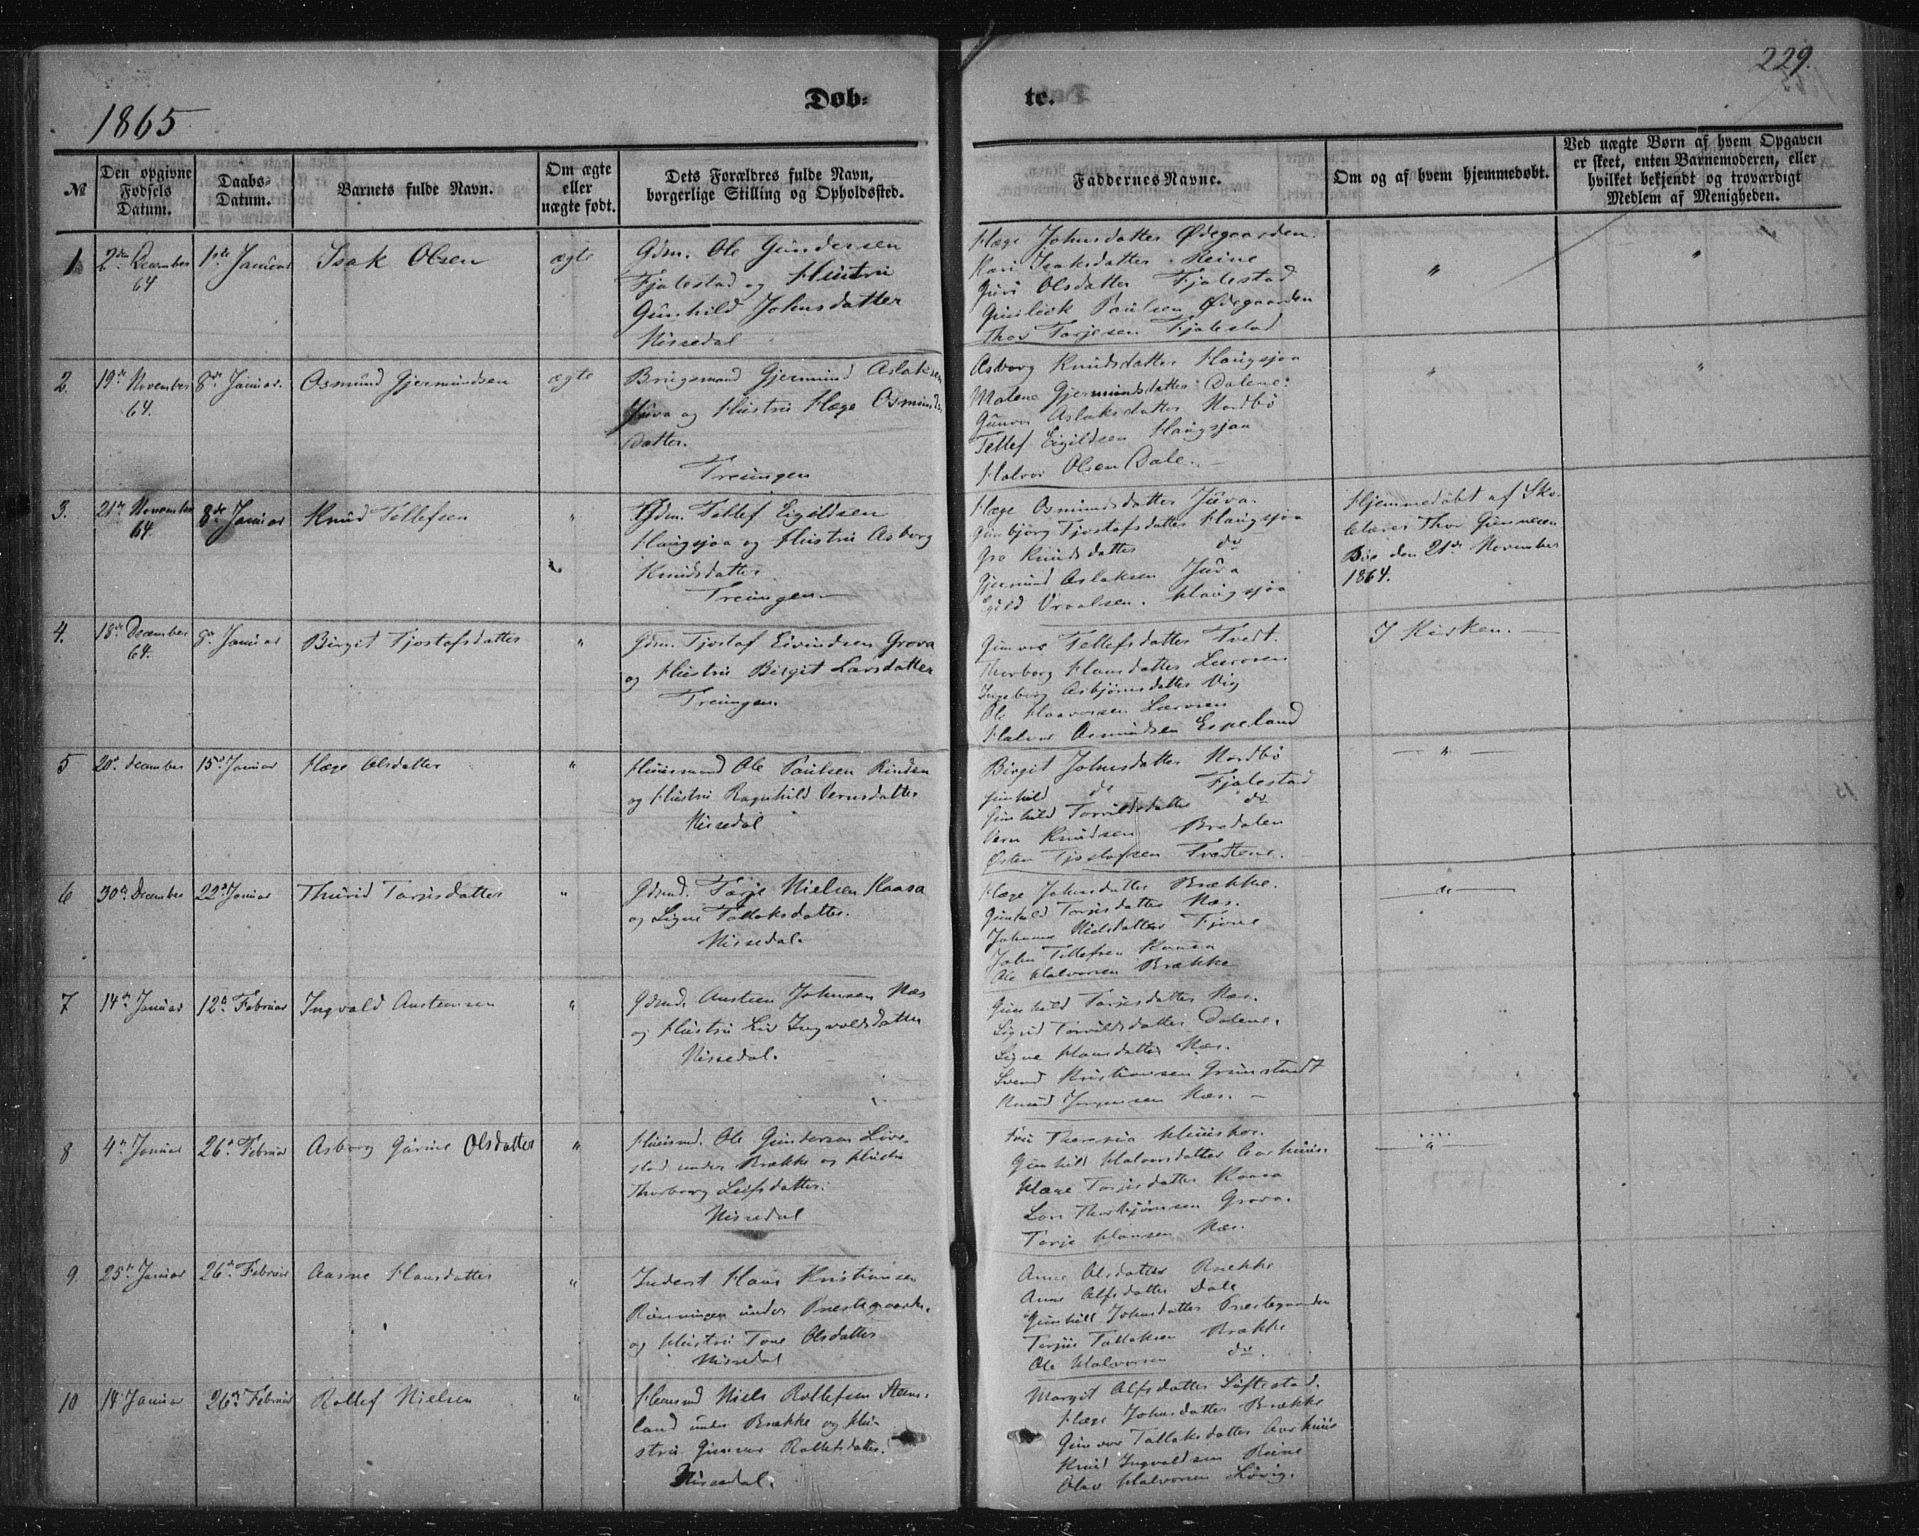 229.
1865
Døb-
te.
№
Den opgivne Fødsels Datum.
Daabs-Datum.
Barnets fulde Navn.
Om ægte eller uægte født.
Dets Forældres fulde Navn, borgerlige Stilling og Opholdssted.
Faddernes Navne.
Om og af hvem hjemmedøbt.
Ved uægte Børn af hvem Opgaven er skeet, enten Barnemoderen, eller hvilket bekjendt og troværdigt Medlem af Menigheden.
1 2den December 64 1ste Januar Isak Olsen ægte
Gdm. Ole Gundersen
Fjalestad og Hustru
Gunhild Johnsdatter
Nissedal
Hæge Johnsdatter Ødegaarden.
Kari Isaksdatter Heine
Guri Olsdatter Fjalestad
Gunleik Paulsen Ødegaarden
Thov Torjesen Fjalestad
2. 19de November 64. 8de Januar. Osmund Gjermundsen ægte
Brugsmand Gjermund Aslaksen
Juva og Hustru Hæge Osmunds
datter.
Treungen
Asborg Knudsdatter Haugsjaa
Malene Gjermundsdatter Dalene.
Gunvor Aslaksdatter Nordbø
Tellef Eigildsen Haugsjaa
Halvor Olsen Dale.
3. 21de November 64. 8de Januar Knud Tellefsen "
Gdm. Tellef Eigildsen
Haugsjaa og Hustru Asborg
Knudsdatter.
Treungen
Hæge Osmundsdatter Juva.
Gunbjørg Tjostafsdatter Haugsjaa
Gro Knudsdatter do
Gjermund Aslaksen Juva
Egild Vraalsen. Haugsjaa
Hjemmedøbt af Sko-
lærer Thor Gunnesen
Bø den 21de November
1864.
4. 18de December 64. 8de Januar Birgit Tjostafsdatter "
Gdm. Tjostaf Eivindsen Grova
og Hustru Birgit Larsdatter
Treungen.
Gunvor Tellefsdatter Tvedt.
Thorborg Hansdatter
Ingeborg Asbjørnsdatter Vig
Ole Haavorsen
Halvor Osmundsen Espeland
I Kirken.
5 20de December 15de Januar Hæge Olsdatter "
Huusmand Ole Paulsen Rinden
og Hustru Ragnhild Vernsdatter
Nissedal
Birgit Johnsdatter Nordbø
Gunhild do Fjalestad
Gunhild Torvildsdatter do
Vern Knudsen Brodalen
Østen Tjostafsen Tvedtene.
6 30te December 22de Januar Thurid Torjusdatter "
Gdmd. Torje Nielsen Kaasa
og Signe Tallaksdatter.
Nissedal.
Hæge Johnsdatter Brække.
Gunhild Torjusdatter Næs.
Johanne Nielsdatter Fjone
John Tellefsen Kaasa
Ole Halvorsen Brække
7 14de Januar 12de Februar Ingvald Austensen "
Gdmd. Austen Johnsen Næs
og Hustru Liv Ingvoldsdatter
Nissedal.
Gunhild Torjusdatter Næs.
Sigrid Torvildsdatter Dalene.
Signe Hansdatter Næs.
Svend Kristiansen Grimstvedt
Knud Jørgensen Næs.
8 4de Januar 26de Februar Asborg Gurine Olsdatter "
Huusmd. Ole Gundersen Live-
stad under Brække og Hustru
Thorborg Leifsdatter.
Nissedal
Gunhild Halvorsdatter Aarhuus.
Hæge Torjusdatter Kaasa
Lars Thorbjørnsen Grova.
Torje Hansen Næs.
9. 25de Januar 26de Februar Aasne Hansdatter "
Inderst Hans Kristiansen
Rønningen under Præstegaarden
og Hustru Tone Olsdatter
Nissedal
Anne Olsdatter Brække
Anne Alfsdatter Dale
Gunhild Johnsdatter Præstegaarden
Torjus Tallaksen Brække
Ole Halvorsen do.
10 14 Januar 26de Februar Rollef Nielsen "
Huusmd Niels Rollefsen Steens-
land under Brække og Hu-
stru Gunvor Rollefsdatter.
Nissedal.
Margit Alfsdatter Løftestad.
Hæge Johnsdatter Brække
Gunvor Tallaksdatter Aarhuus
Knud Ingvaldsen Heine
Olav Halvorsen